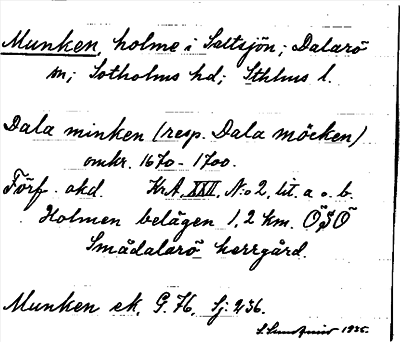 Munken, holme i Saltsjön; Dalarö
sn; Sotholms hd; Sthlms l.
Dala minken (resp. Dala möcken)
omkr. 1670-1700.
Förf. okd. KrA. XXII, N:o 2, lit. a o. b.
Holmen belägen 1,2 km. ÖSÖ
Smådalarö herrgård.
Munken ek. G. 76, Sj. 236.
1935.